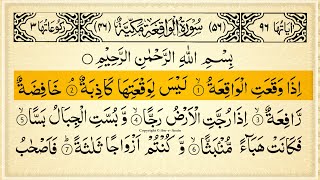 اٰيَاتُهَا ٩٦ (٥٦) سُوْرَةُ الْوَاقِعَةِ مَكِّيَّةٌ (٤٦) رُكُوْعَاتُهَا ٣
بِسْمِ اللّٰهِ الرَّحْمٰنِ الرَّحِيْمِ
اِذَا وَقَعَتِ الْوَاقِعَةُ ① لَيْسَ لِوَقْعَتِهَا كَاذِبَةٌ ② خَافِضَةٌ
رَّافِعَةٌ ③ اِذَا رُجَّتِ الْاَرْضُ رَجًّا ④ وَّبُسَّتِ الْجِبَالُ بَسًّا ⑤
فَكَانَتْ هَبَآءً مُّنْۢبَثًّا ⑥ وَّكُنْتُمْ اَزْوَاجًا ثَلٰثَةً ⑦ فَاَصْحٰبُ